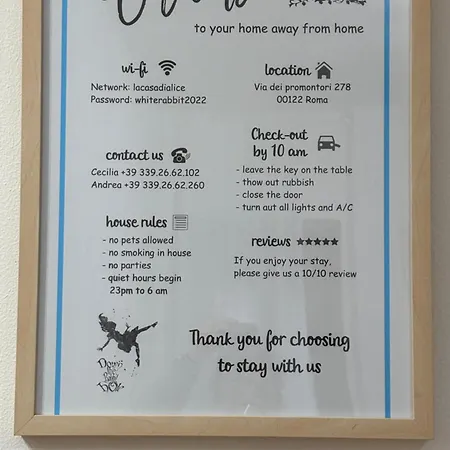 to your home away from home
wi-fi
Network: lacasadialice
Password: whiterabbit2022
location
Via dei promontori 278
00122 Roma
contact us
Cecilia +39 339.26.62.102
Andrea +39 339.26.62.260
Check-out
by 10 am
- leave the key on the table
- thow out rubbish
- close the door
- turn aut all lights and A/C
house rules
- no pets allowed
- no smoking in house
- no parties
- quiet hours begin
23pm to 6 am
reviews
If you enjoy your stay,
please give us a 10/10 review
Thank you for choosing
to stay with us
Down
the